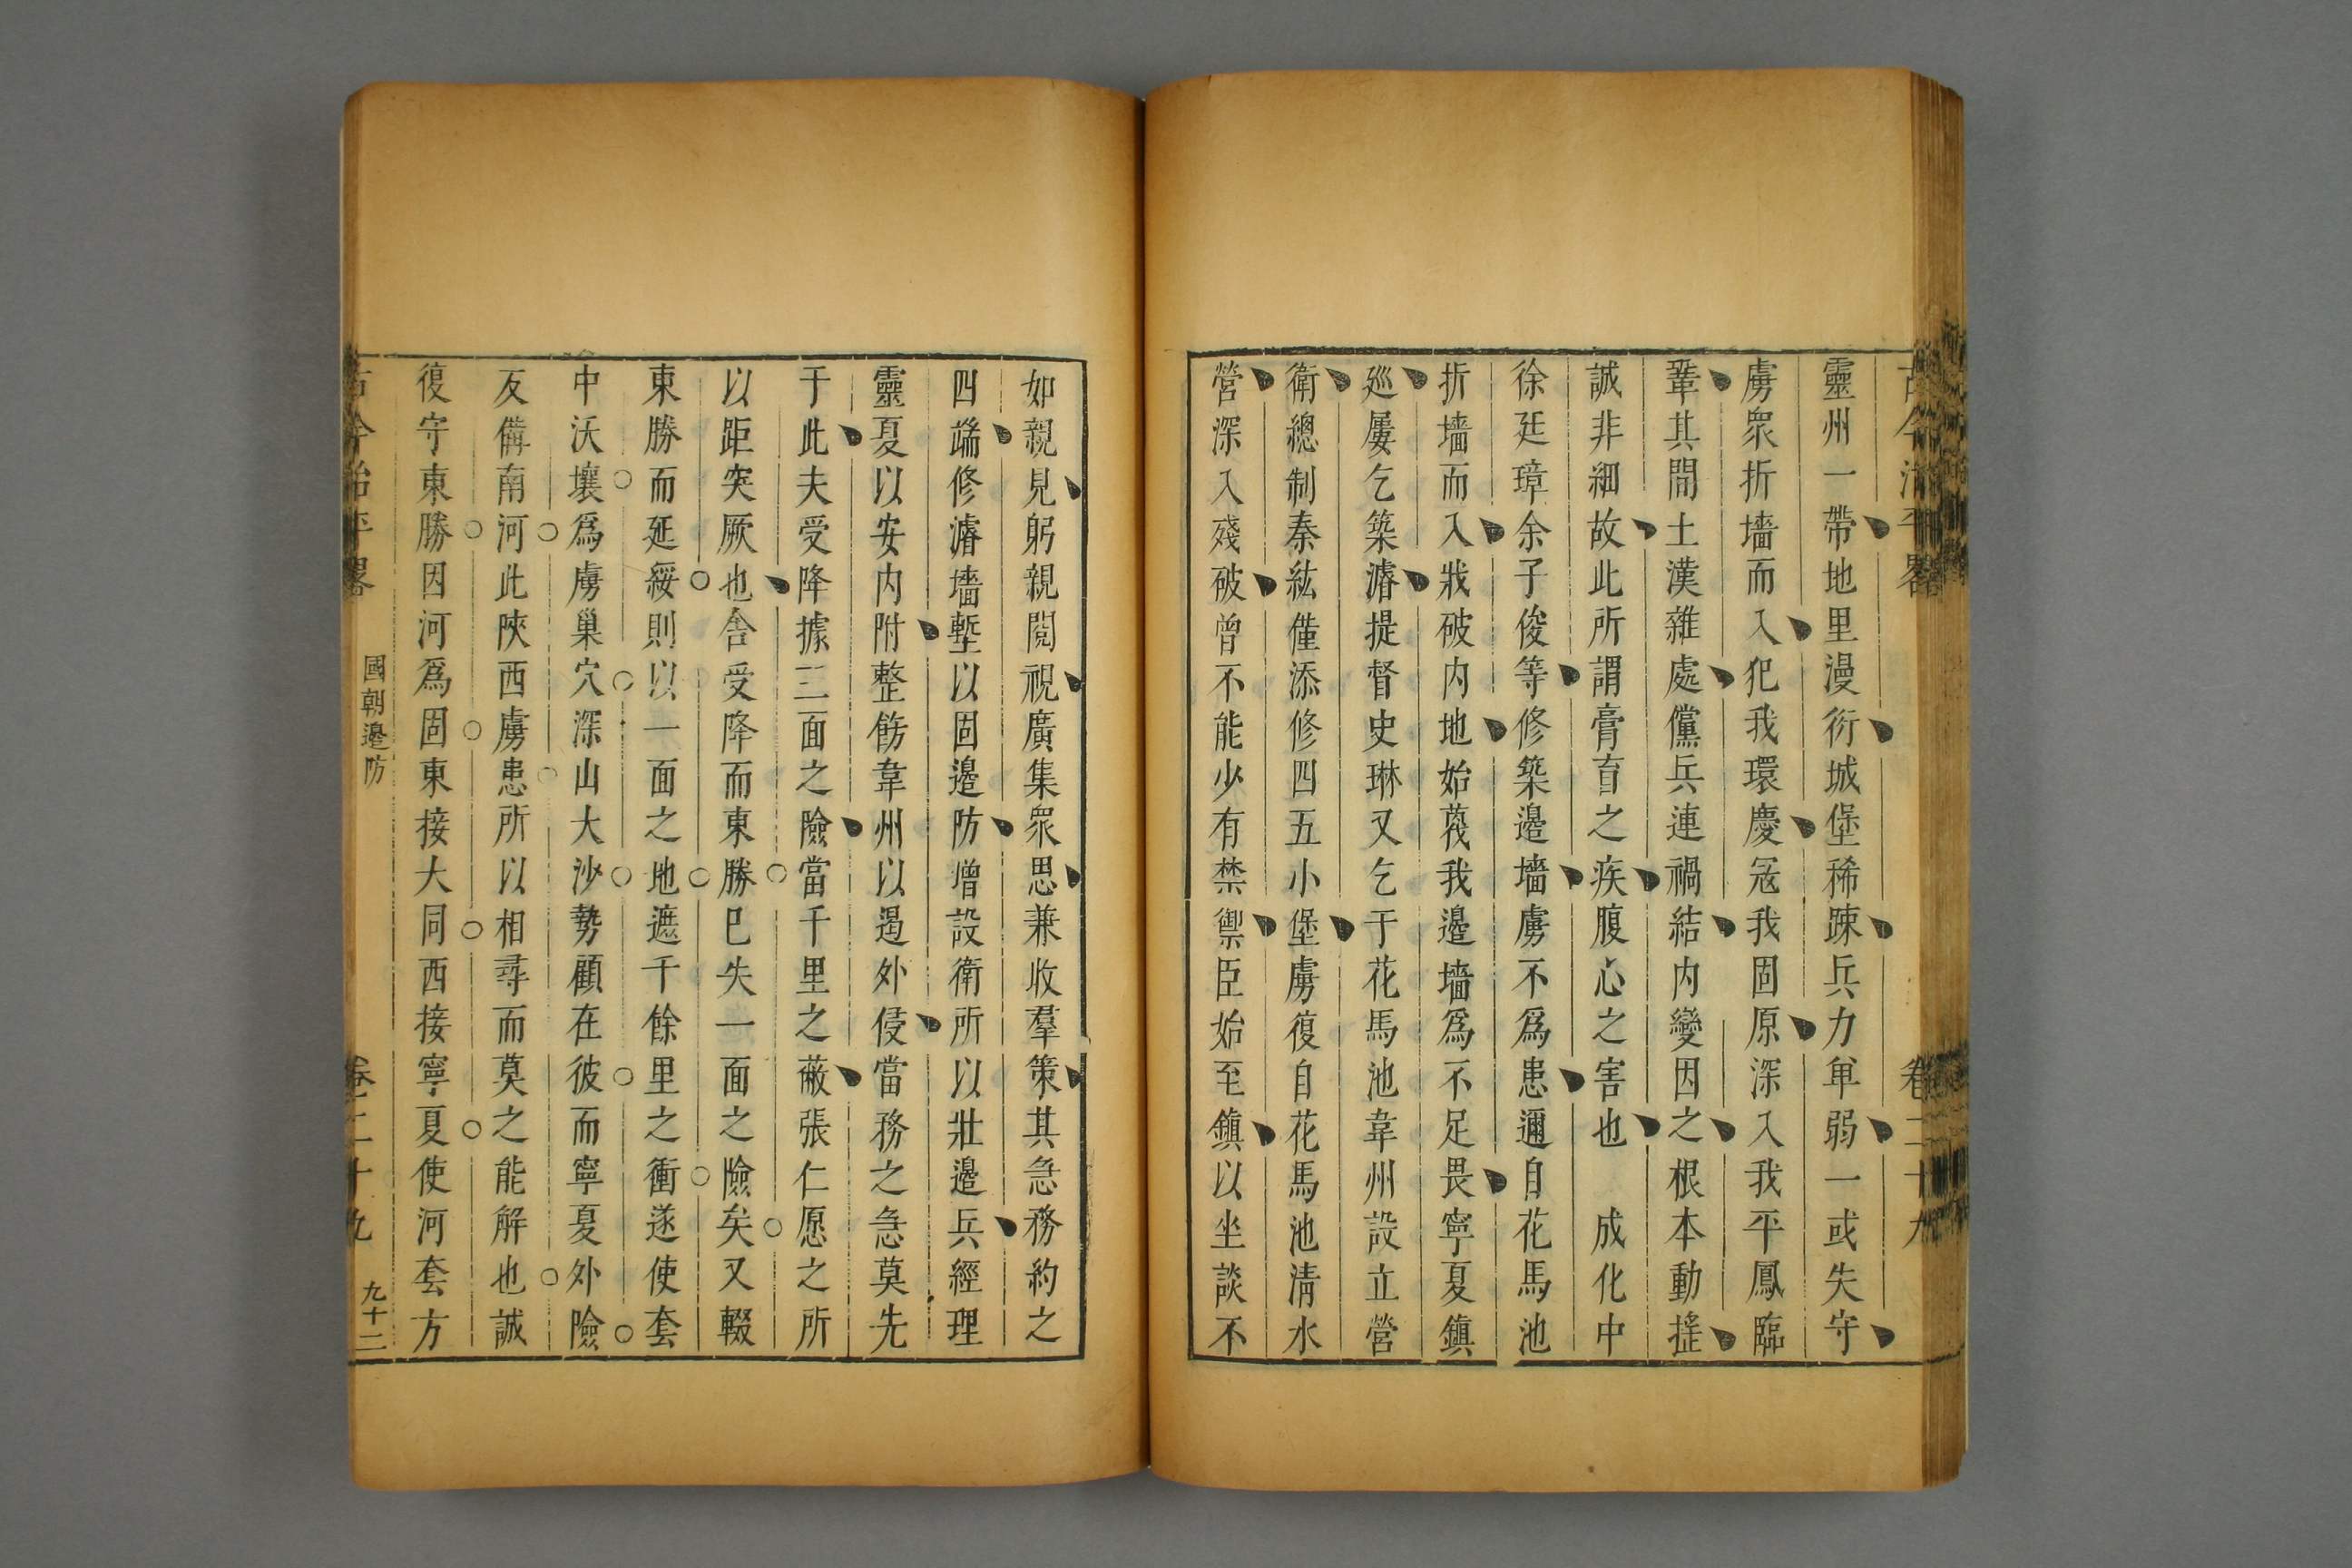 古今治平畧 卷二十九
靈州一帶地里漫衍城堡稀踈兵力單弱一或失守
虜衆折墻而入犯我環慶冦我固原深入我平鳳臨
鞏其間土漢雜處儻兵連禍結内變因之根本動摇
誠非細故此所謂膏肓之疾腹心之害也 成化中
徐廷璋余子俊等修築邉墻虜不爲患邇自花馬池
折墻而入戕破内地始蔑我邉墻爲不足畏寧夏鎮
廵屢乞築濬提督史琳又乞于花馬池韋州設立營
衛總制秦紘僅添修四五小堡虜復自花馬池清水
營深入殘破曾不能少有禁禦臣始至鎮以坐談不
如親見躬親閱視廣集衆思兼收羣策其急務約之
四端修濬墻塹以固邉防增設衛所以壯邉兵經理
靈夏以安内附整飭韋州以遏外侵當務之急莫先
于此夫受降據三面之險當千里之蔽張仁愿之所
以距突厥也舍受降而東勝已失一面之險矣又輟
東勝而延綏則以一面之地遮千餘里之衝遂使套
中沃壤爲虜巢穴深山大沙勢顧在彼而寧夏外險
反備南河此陜西虜患所以相尋而莫之能解也誠
復守東勝因河爲固東接大同西接寧夏使河套方
古今治平畧 國朝邉防 卷二十九 九十二